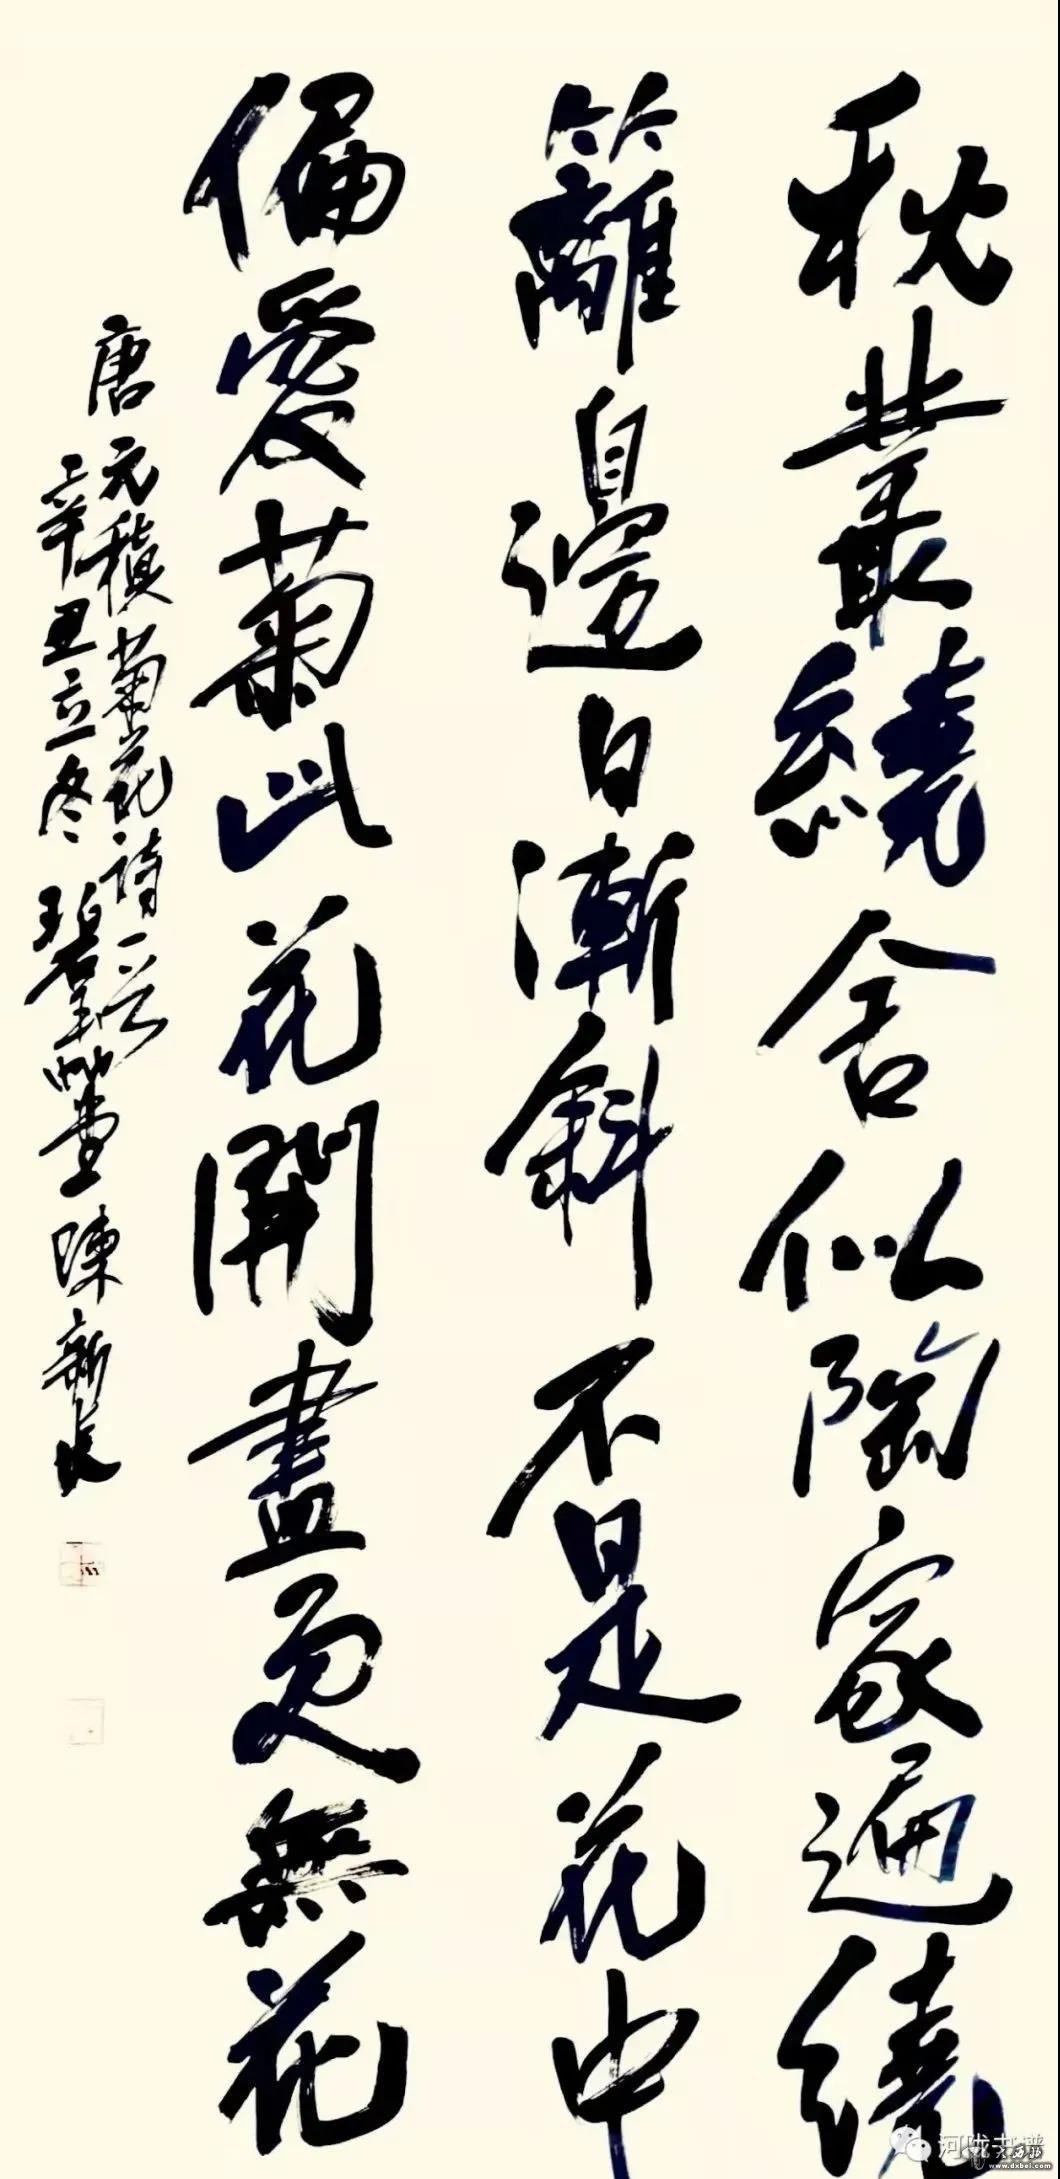 秋叢繞舍似陶家遍繞
籬邊日漸斜不是花中
偏愛菊此花開盡更無花
唐元稹菊花詩一首
辛丑立冬碧雲堂陳新長
河陇书谱
www.dxbei.com